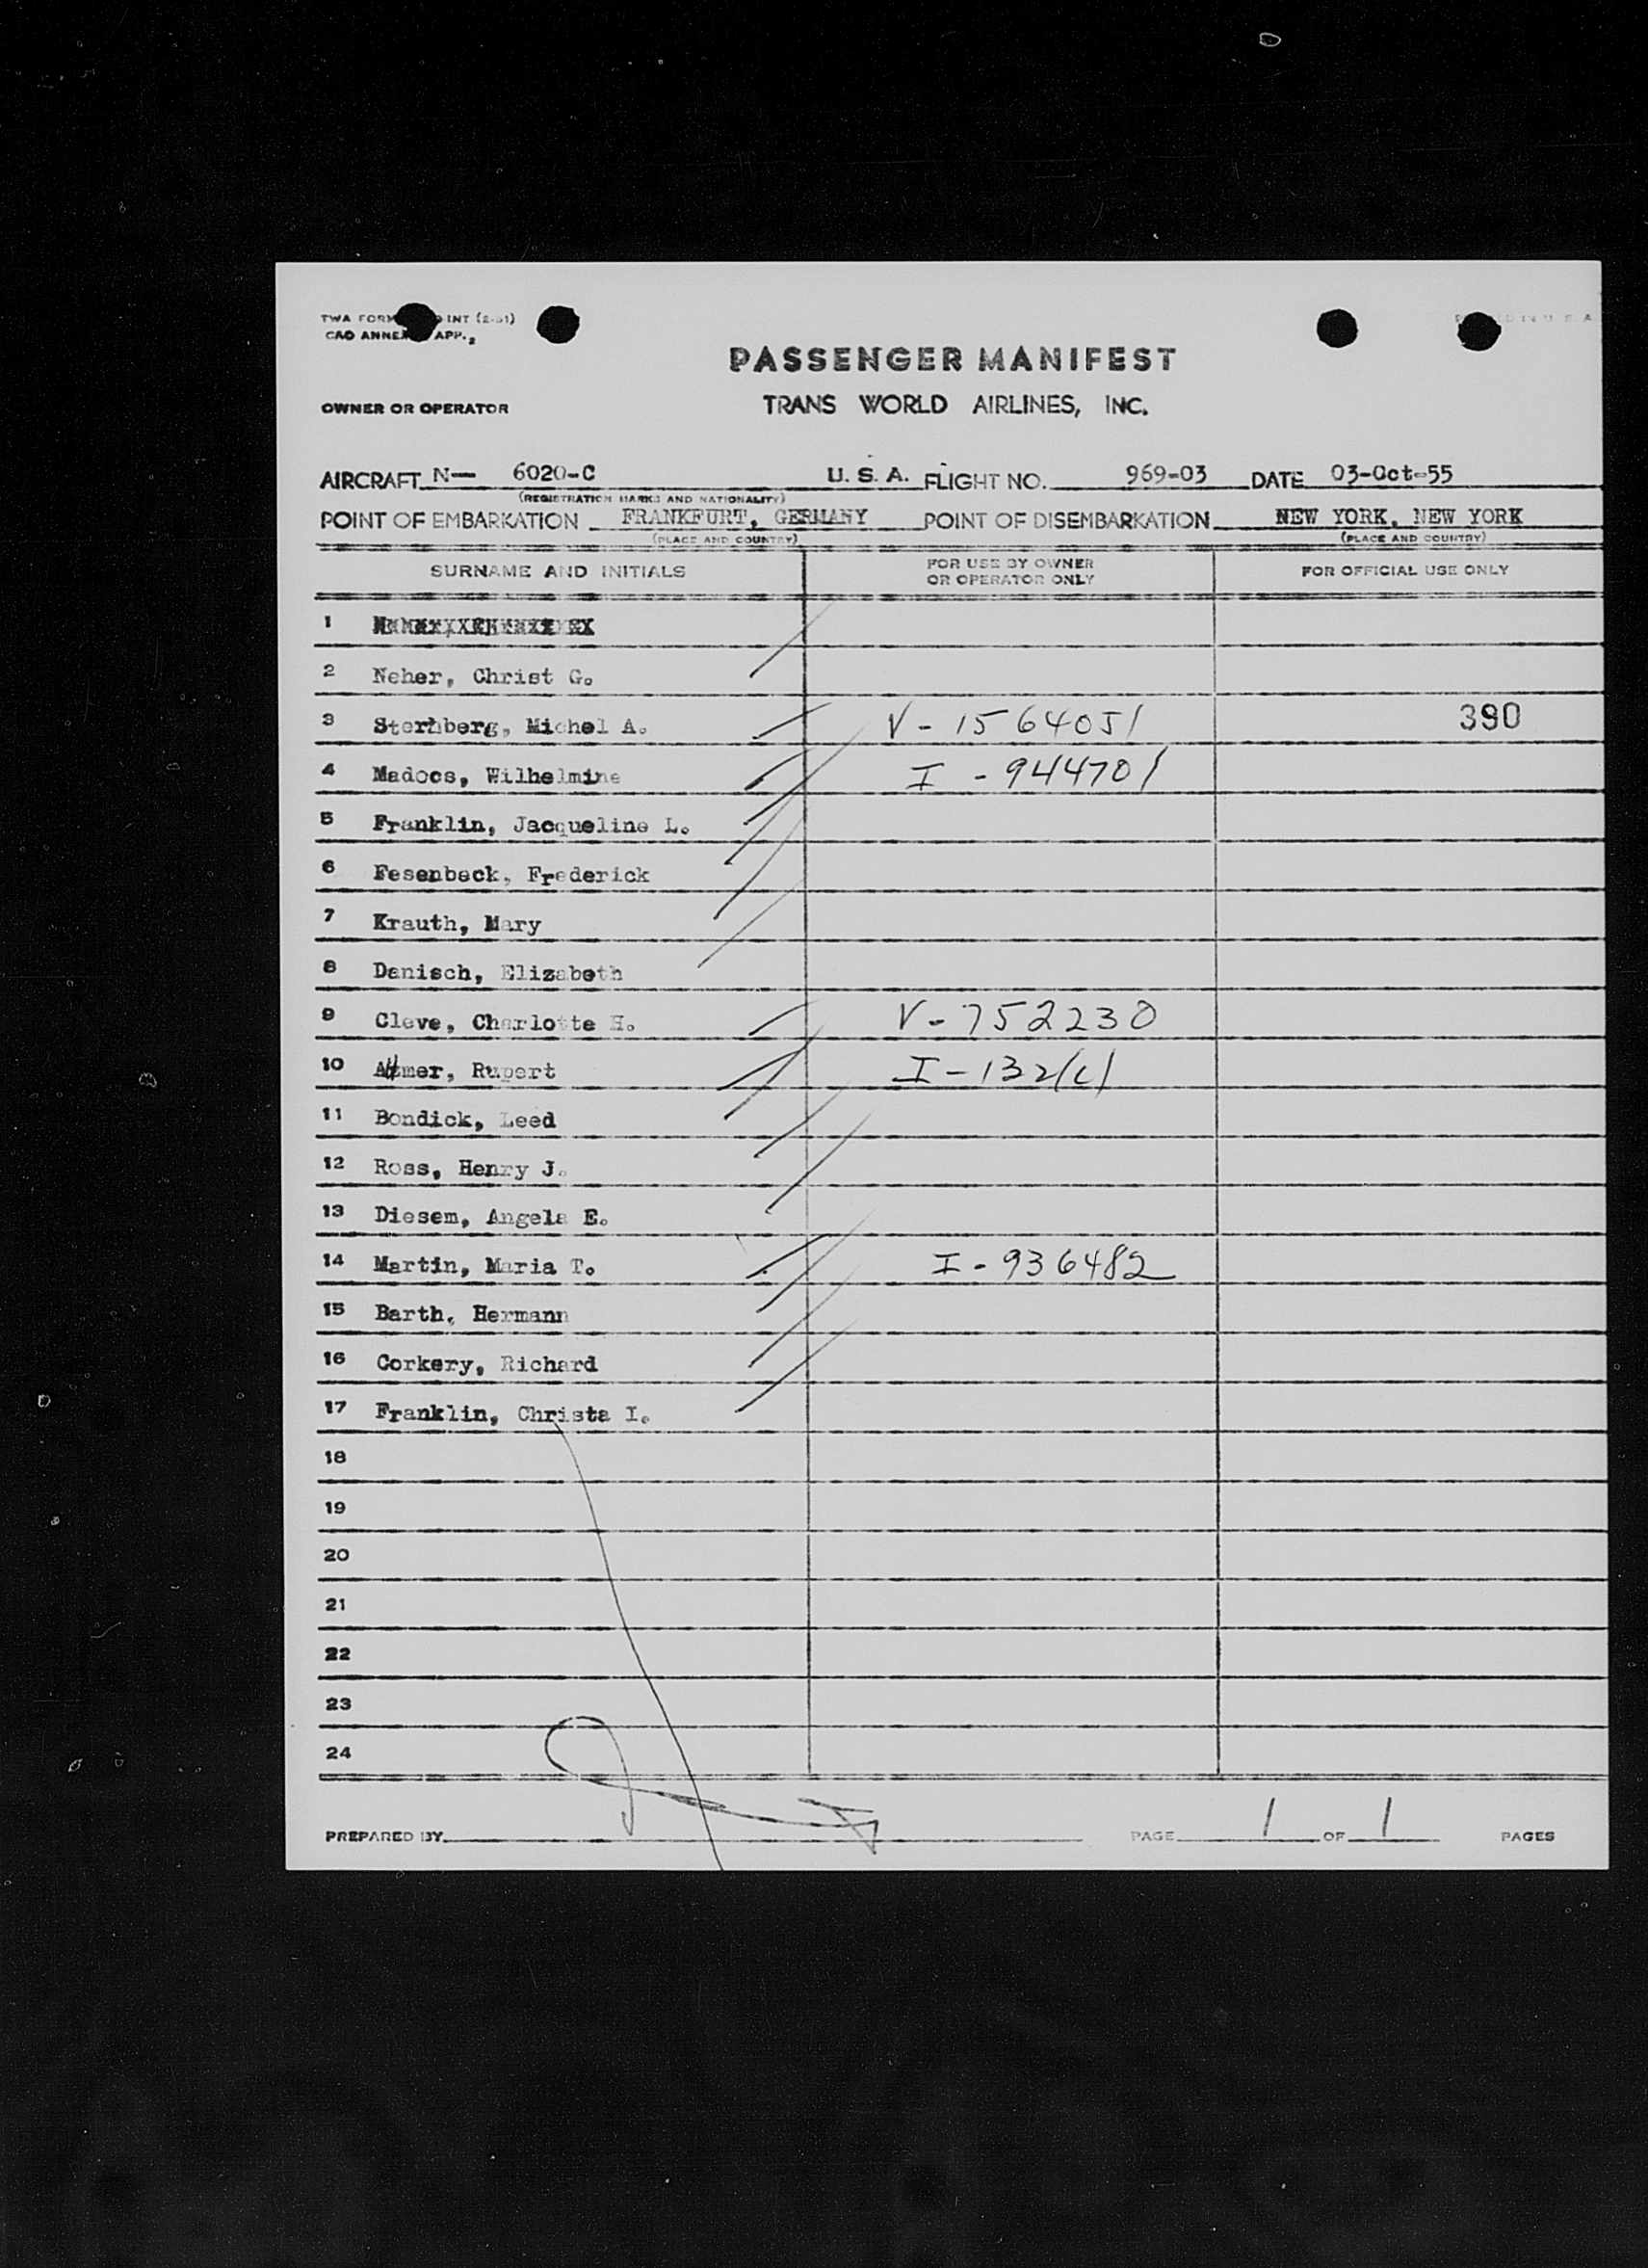 TWA FORM INT (2-51)
CAO ANNEX APP. 2
PASSENGER MANIFEST
OWNER OR OPERATOR TRANS WORLD AIRLINES, INC.
AIRCRAFT N— 6020-C U. S. A. FLIGHT NO. 969-03 DATE 03-Oct-55
(REGISTRATION MARKS AND NATIONALITY)
POINT OF EMBARKATION FRANKFURT, GERMANY POINT OF DISEMBARKATION NEW YORK, NEW YORK
(PLACE AND COUNTRY) (PLACE AND COUNTRY)
SURNAME AND INITIALS FOR USE BY OWNER OR OPERATOR ONLY FOR OFFICIAL USE ONLY
1
2 Neher, Christ G.
3 Sternberg, Michel A. V-1564051 390
4 Madocs, Wilhelmine I-944701
5 Franklin, Jacqueline L.
6 Fesenbeck, Frederick
7 Krauth, Mary
8 Danisch, Elizabeth
9 Cleve, Charlotte H. V-752230
10 Rupert
11 Bondick, Leed
12 Ross, Henry J.
13 Diesem, Angela E.
14 Martin, Maria T. I-936482
15 Barth, Hermann
16 Corkery, Richard
17 Franklin, Christa I.
18
19
20
21
22
23
24
PREPARED BY PAGE 1 OF 1 PAGES